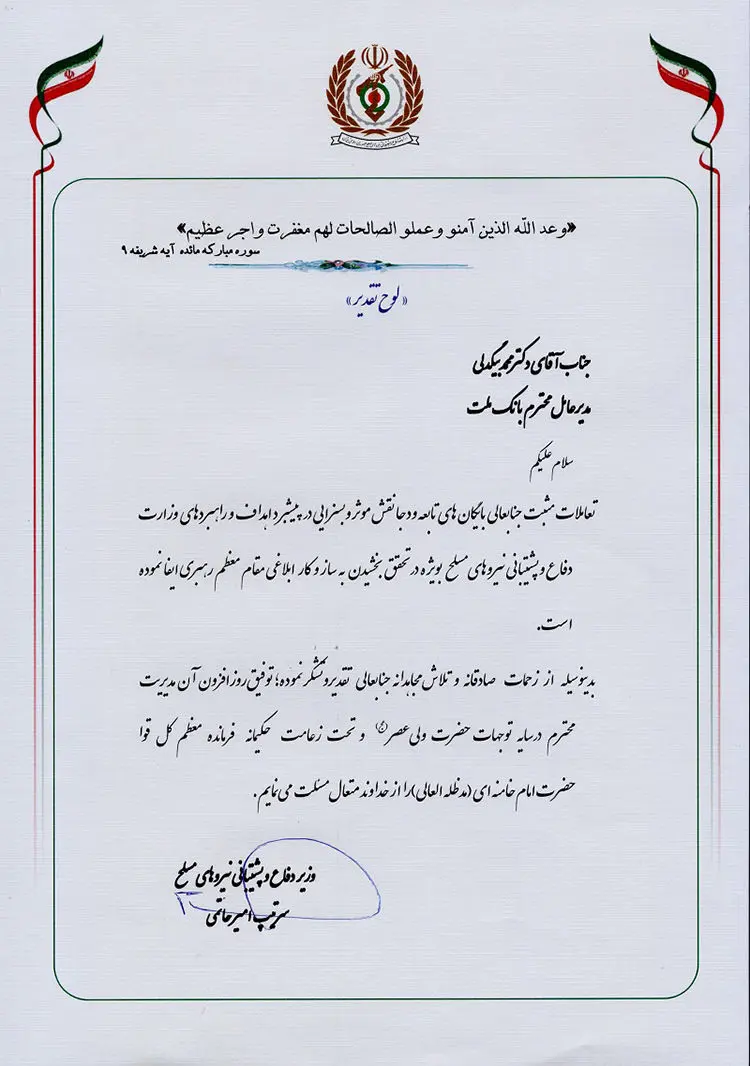 «وعد اللّه الذین آمنو وعملو الصالحات لهم مغفرت واجر عظیم»
سوره مبارکه مائده آیه شریفه ۹
«لوح تقدیر»
جناب آقای دکتر محمد بیگدلی
مدیرعامل محترم بانک ملت
سلام علیکم
تعاملات مثبت جنابعالی بایگان های تابعه ودجا نقش موثر و بسزایی در پیشبرد اهداف و راهبردهای وزارت
دفاع و پشتیبانی نیروهای مسلح بویژه در تحقق بخشیدن به ساز و کار ابلاغی مقام معظم رهبری ایفا نموده
است.
بدینوسیله از زحمات صادقانه و تلاش مجاهدانه جنابعالی تقدیر و تشکر نموده؛ توفیق روزافزون آن مدیریت
محترم درسایه توجهات حضرت ولی عصر(عج) و تحت زعامت حکیمانه فرمانده معظم کل قوا
حضرت امام خامنه ای (مدظله العالی) را از خداوند متعال مسئلت می نمایم.
وزیر دفاع و پشتیبانی نیروهای مسلح
سرتیپ امیر حاتمی